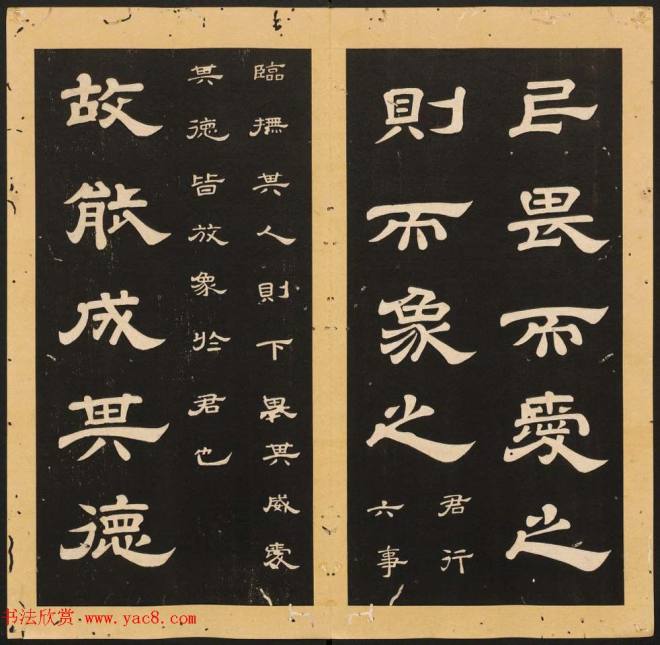 民畏而愛之
則而象之
君行
六事
臨撫其人則下畏其威愛
其德皆放象於君也
故能成其德
书法欣赏 www.yac8.com